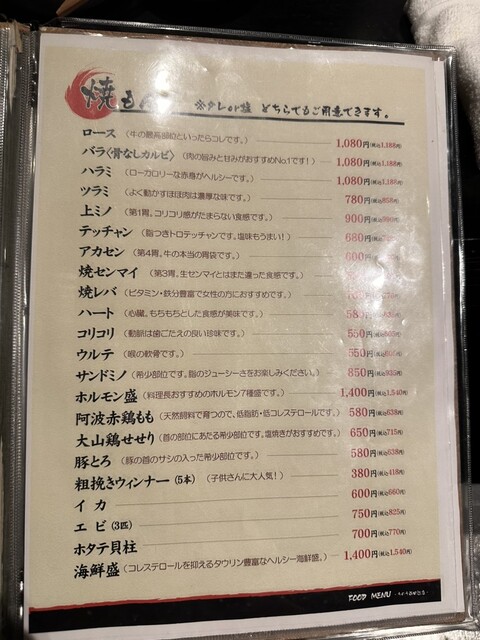 焼もの ※タレor塩 どちらでもご用意できます。
ロース (牛の最高部位といったらコレです。) 1,080円(税込1,188円)
バラ〈骨なしカルビ〉 (肉の旨みと甘みがおすすめNo.1です!) 1,080円(税込1,188円)
ハラミ (ローカロリーな赤身がヘルシーです。) 1,080円(税込1,188円)
ツラミ (よく動かすほほ肉は濃厚な味です。) 780円(税込858円)
上ミノ (第1胃。コリコリ感がたまらない食感です。) 900円(税込990円)
テッチャン (脂つきトロテッチャンです。塩味もうまい!) 680円
アカセン (第4胃。牛の本当の胃袋です。) 600円
焼センマイ (第3胃。生センマイとはまた違った食感です。)
焼レバ (ビタミン・鉄分豊富で女性の方におすすめです。)
ハート (心臓。もちもちとした食感が美味です。) 580円
コリコリ (動脈は歯ごたえの良い珍味です。) 550円(税込605円)
ウルテ (喉の軟骨です。) 550円
サンドミノ (希少部位です。脂のジューシーさをお楽しみください。) 850円(税込935円)
ホルモン盛 (料理長おすすめのホルモン7種盛です。) 1,400円(税込1,540円)
阿波赤鶏もも (天然飼料で育つので、低脂肪・低コレステロールです。) 580円(税込638円)
大山鶏せせり (首の部位にあたる希少部位です。塩焼きがおすすめです。) 650円(税込715円)
豚とろ (豚の首のサシの入った希少部位です。) 580円(税込638円)
粗挽きウィンナー (5本) (子供さんに大人気!) 380円(税込418円)
イカ 600円(税込660円)
エビ (3匹) 750円(税込825円)
ホタテ貝柱 700円(税込770円)
海鮮盛 (コレステロールを抑えるタウリン豊富なヘルシー海鮮盛。) 1,400円(税込1,540円)
FOOD MENU